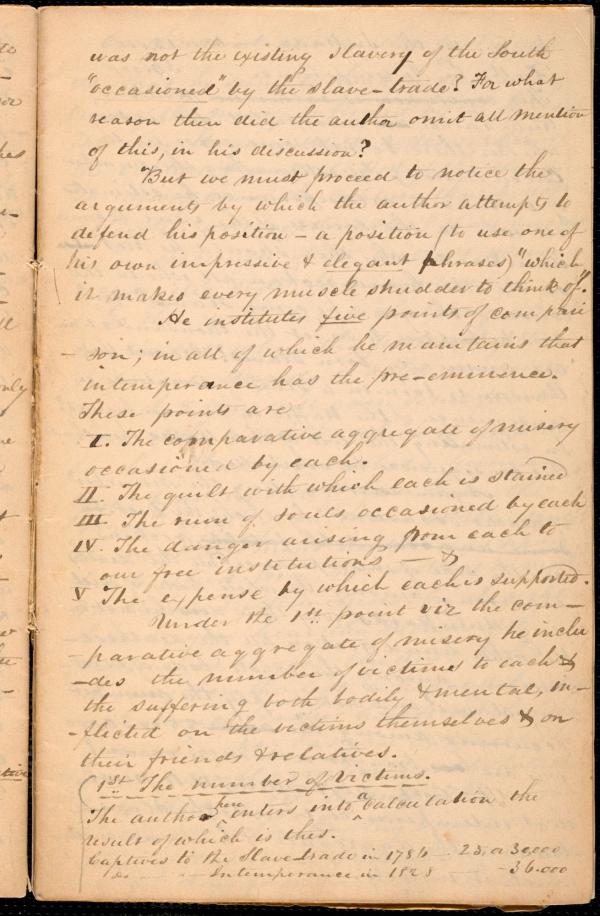 was not the existing slavery of the South
"occasioned" by the slave-trade? For what
reason then did the author omit all mention
of this, in his discussion?
But we must proceed to notice the
arguments by which the author attempts to
defend his position – a position (to use one of
his own impressive & elegant phrases) "which
it makes every muscle shudder to think of".
He institutes five points of compari
- son; in all of which he maintains that
intemperance has the pre-eminence.
These points are
I. The comparative aggregate of misery
occasioned by each.
II. The guilt with which each is stained
III. The ruin of souls occasioned by each
IV. The danger arising from each to
our free institutions — &
V The expense by which each is supported.
Under the 1st point viz the com-
- parative aggregate of misery he inclu
- des the number of victims to each &
the suffering both bodily & mental, in-
- flicted on the victims themselves & on
their friends & relatives.
1st The number of victims.
The author here enters into a calculation the
result of which is this.
Captives to the Slave trade in 1786 — 25, a 30,000
do — Intemperance in 1828 — 36.000